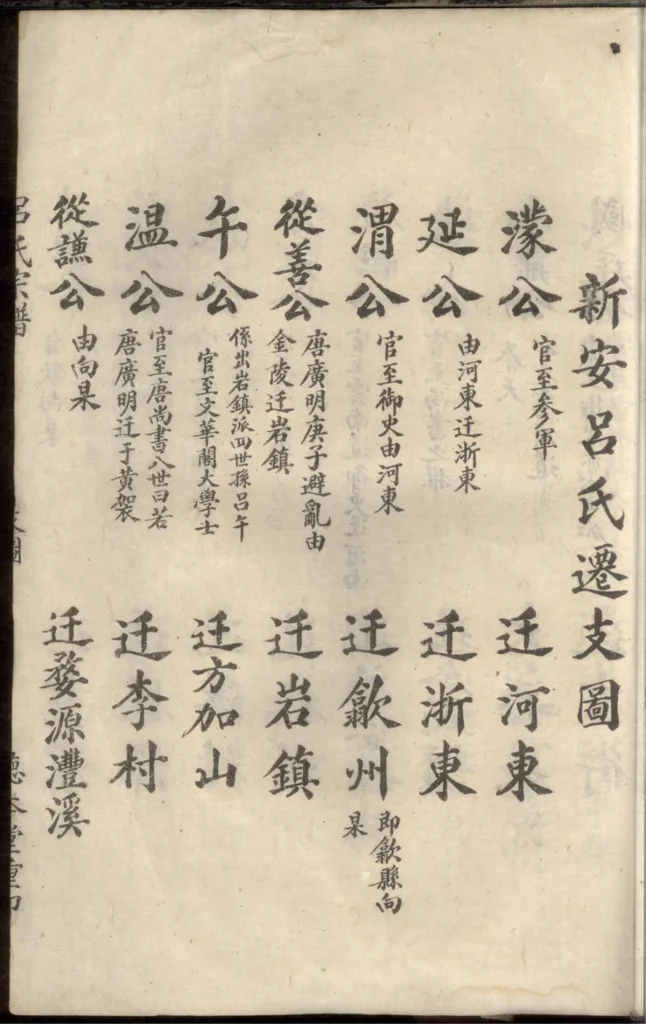 新安呂氏遷支圖
濛公 官至參軍 迁河東
延公 由河東迁浙東 迁浙東
渭公 官至御史由河東 迁歙州 即歙縣向杲
從善公 唐廣明庚子避亂由金陵迁岩鎮 迁岩鎮
午公 係出岩鎮派四世孫呂午官至文華閣大學士 迁方加山
温公 官至唐尚書八世曰若唐廣明迁于黄袈 迁李村
從謙公 由向杲 迁婺源灃溪
呂氏宗譜